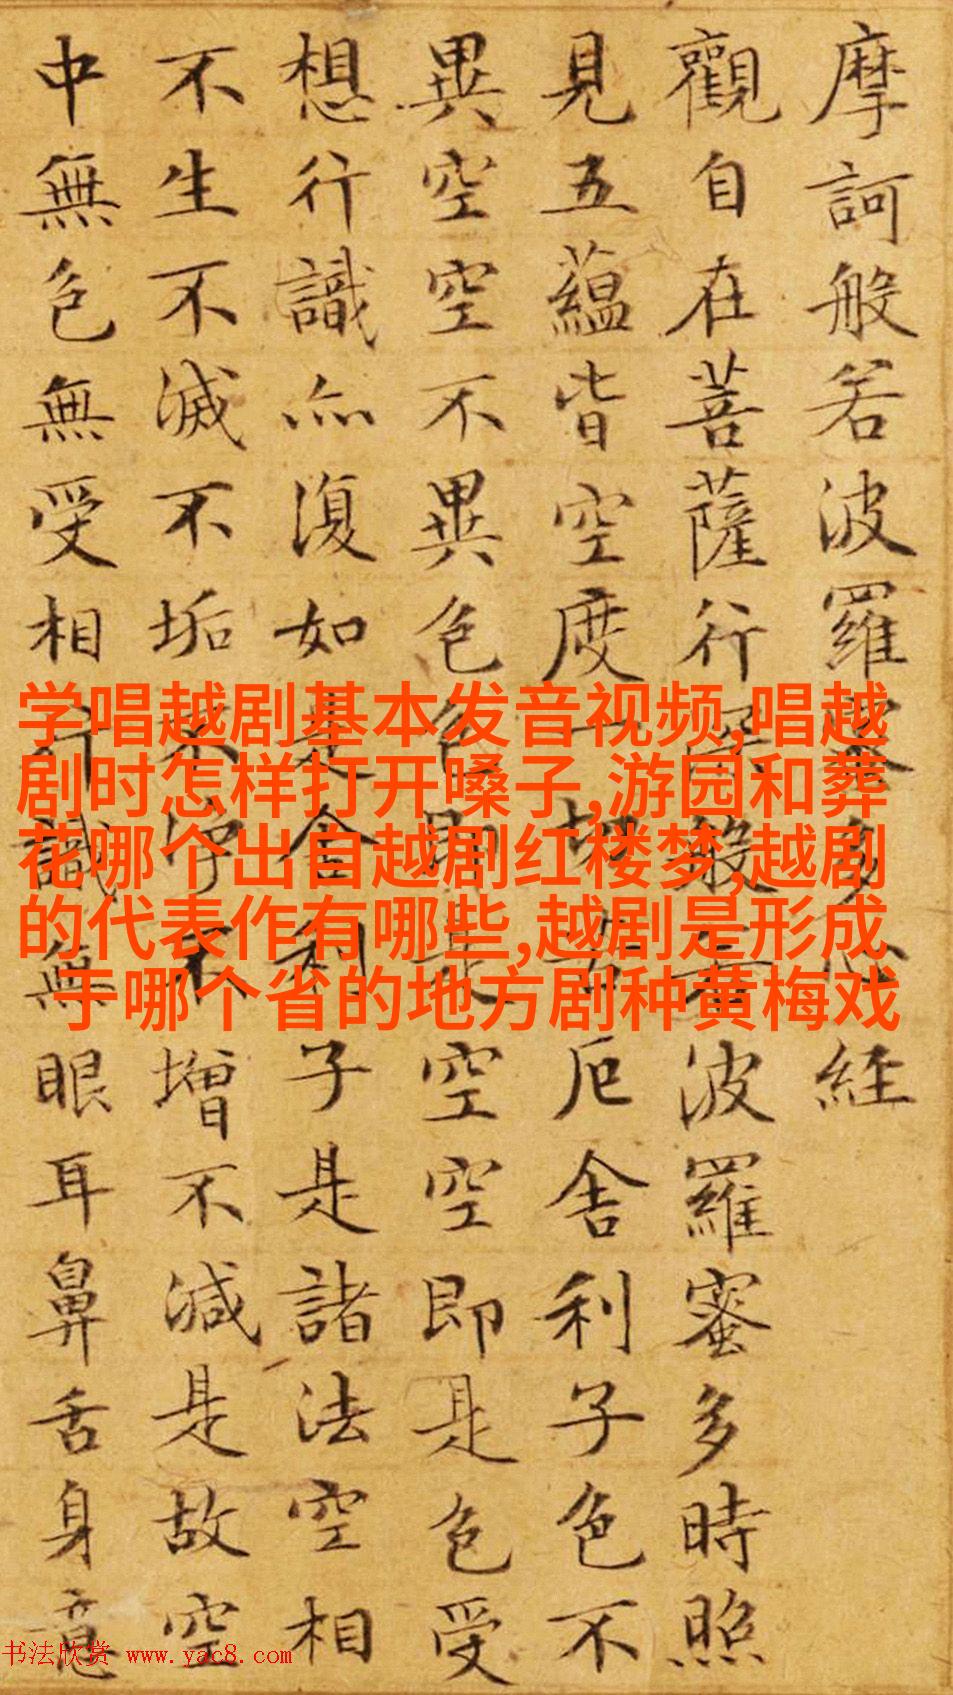 摩訶般若波羅蜜多心經
觀自在菩薩行深般若波羅蜜多時照
見五蘊皆空度一切苦厄舍利子色不
異空空不異色色即是空空即是色受
想行識亦復如是舍利子是諸法空相
不生不滅不垢不淨不增不減是故空
中無色無受相行識無眼耳鼻舌身意
学唱越剧基本发音视频,唱越
剧时怎样打开嗓子,游园和葬
花哪个出自越剧红楼梦,越剧
的代表作有哪些,越剧是形成
于哪个省的地方剧种黄梅戏
书法欣赏 www.yac8.com